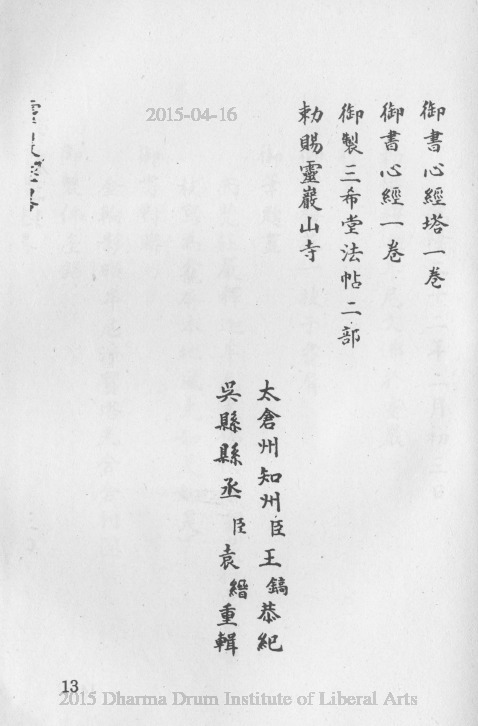 御書心經塔一卷
御書心經一卷
御製三希堂法帖二部
勅賜靈巖山寺
太倉州知州臣王鎬恭紀
吳縣縣丞臣袁緡重輯
2015-04-16
13
2015 Dharma Drum Institute of Liberal Arts